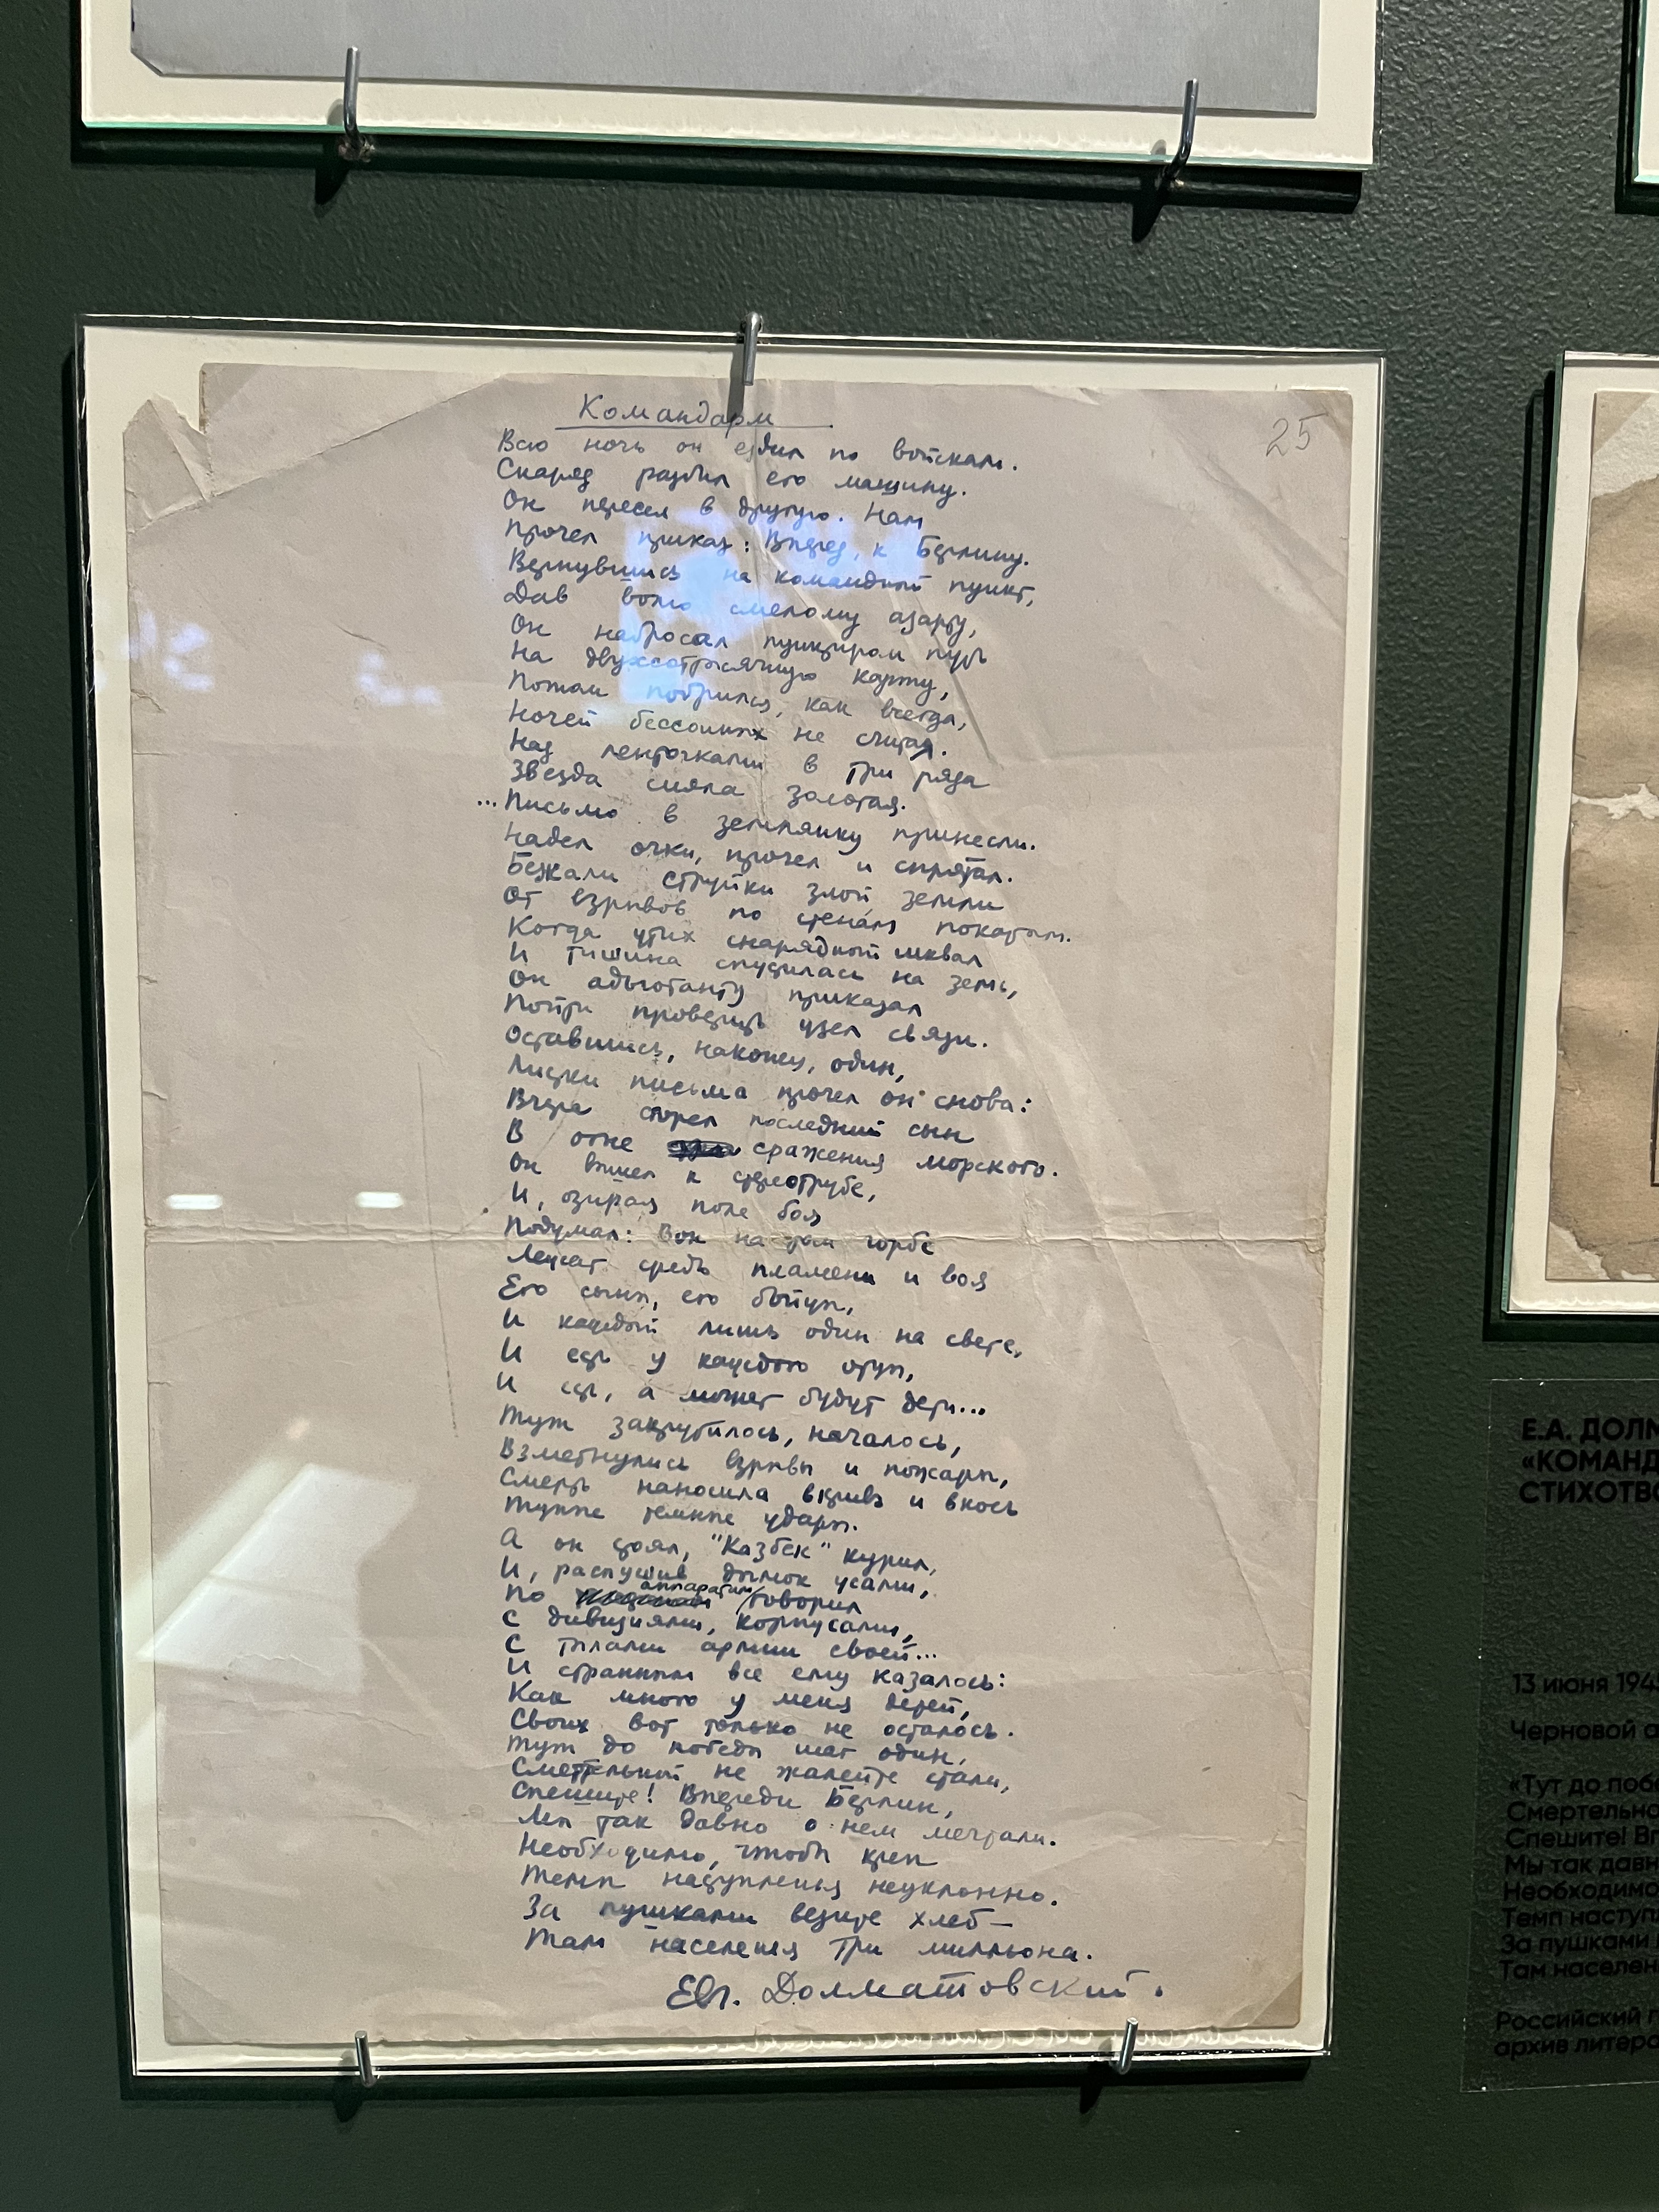 Командарм
25
Всю ночь он ездил по войскам.
Снаряд разбил его машину.
Он пересел в другую. Нам
Прочел приказ: Вперед, к Берлину.
Вернувшись на командный пункт,
Дав волю смелому азарту,
Он набросал пунктиром путь
На двухсоттысячную карту,
Потом побрился, как всегда,
Ночей бессонных не считая.
Над ленточками в три ряда
Звезда сияла золотая.
...Письмо в землянку принесли.
Надел очки, прочел и спрятал.
Бежали струйки злой земли
От взрывов по стенам покатым.
Когда утих снарядный шквал
И тишина спустилась на земь,
Он адъютанту приказал
Пойти проверить узел связи.
Оставшись, наконец, один,
Листки письма прочел он снова:
Вчера сгорел последний сын
В огне сражения морского.
Он вышел к стереотрубе,
И, озирая поле боя
Подумал: Вон на том горбе
Лежат средь пламени и воя
Его сыны, его бойцы,
И каждый лишь один на свете,
И есть у каждого отцы,
И есть, а может будут дети...
Тут закрутилось, началось,
Взметнулись взрывы и пожары,
Смерть наносила вкривь и вкось
Тупые темные удары.
А он стоял, "Казбек" курил,
И, распушив дымок усами,
По аппаратам говорил
С дивизиями, корпусами,
С тылами армии своей...
И странным все ему казалось:
Как много у меня детей,
Своих вот только не осталось.
Тут до победы шаг один,
Смертельной не жалейте стали,
Спешите! Впереди Берлин,
Мы так давно о нем мечтали.
Необходимо, чтобы креп
Темп наступленья неуклонно.
За пушками везите хлеб —
Там населения три миллиона.
Евг. Долматовский.
Е.А. ДОЛМ
«КОМАНД
СТИХОТВО
13 июня 194
Черновой а
«Тут до поб
Смертельно
Спешите! Вп
Мы так давн
Необходимо
Темп наступ
За пушками
Там населен
Российский г
архив литера